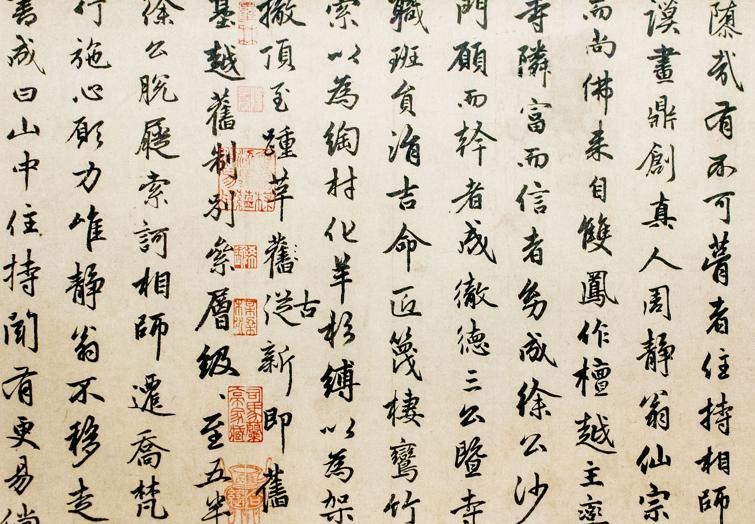 陳哉有不可瞢者住持相師
謨畫鼎創真人周靜翁仙宗
而尚佛来自雙鳳作檀越主
寺隣富而信者勇成徐公沙
門願而幹者成徹德三公暨寺
職班負涓吉命匠篾棲鸞竹
索以為綯村化羊杉縛以為架
撤頂至踵革舊從古新即舊
基越舊制别条層級至五半
徐公脱屣索訶相師遷喬梵
行施心願力唯靜翁不移走
書成曰山中住持闻有更易